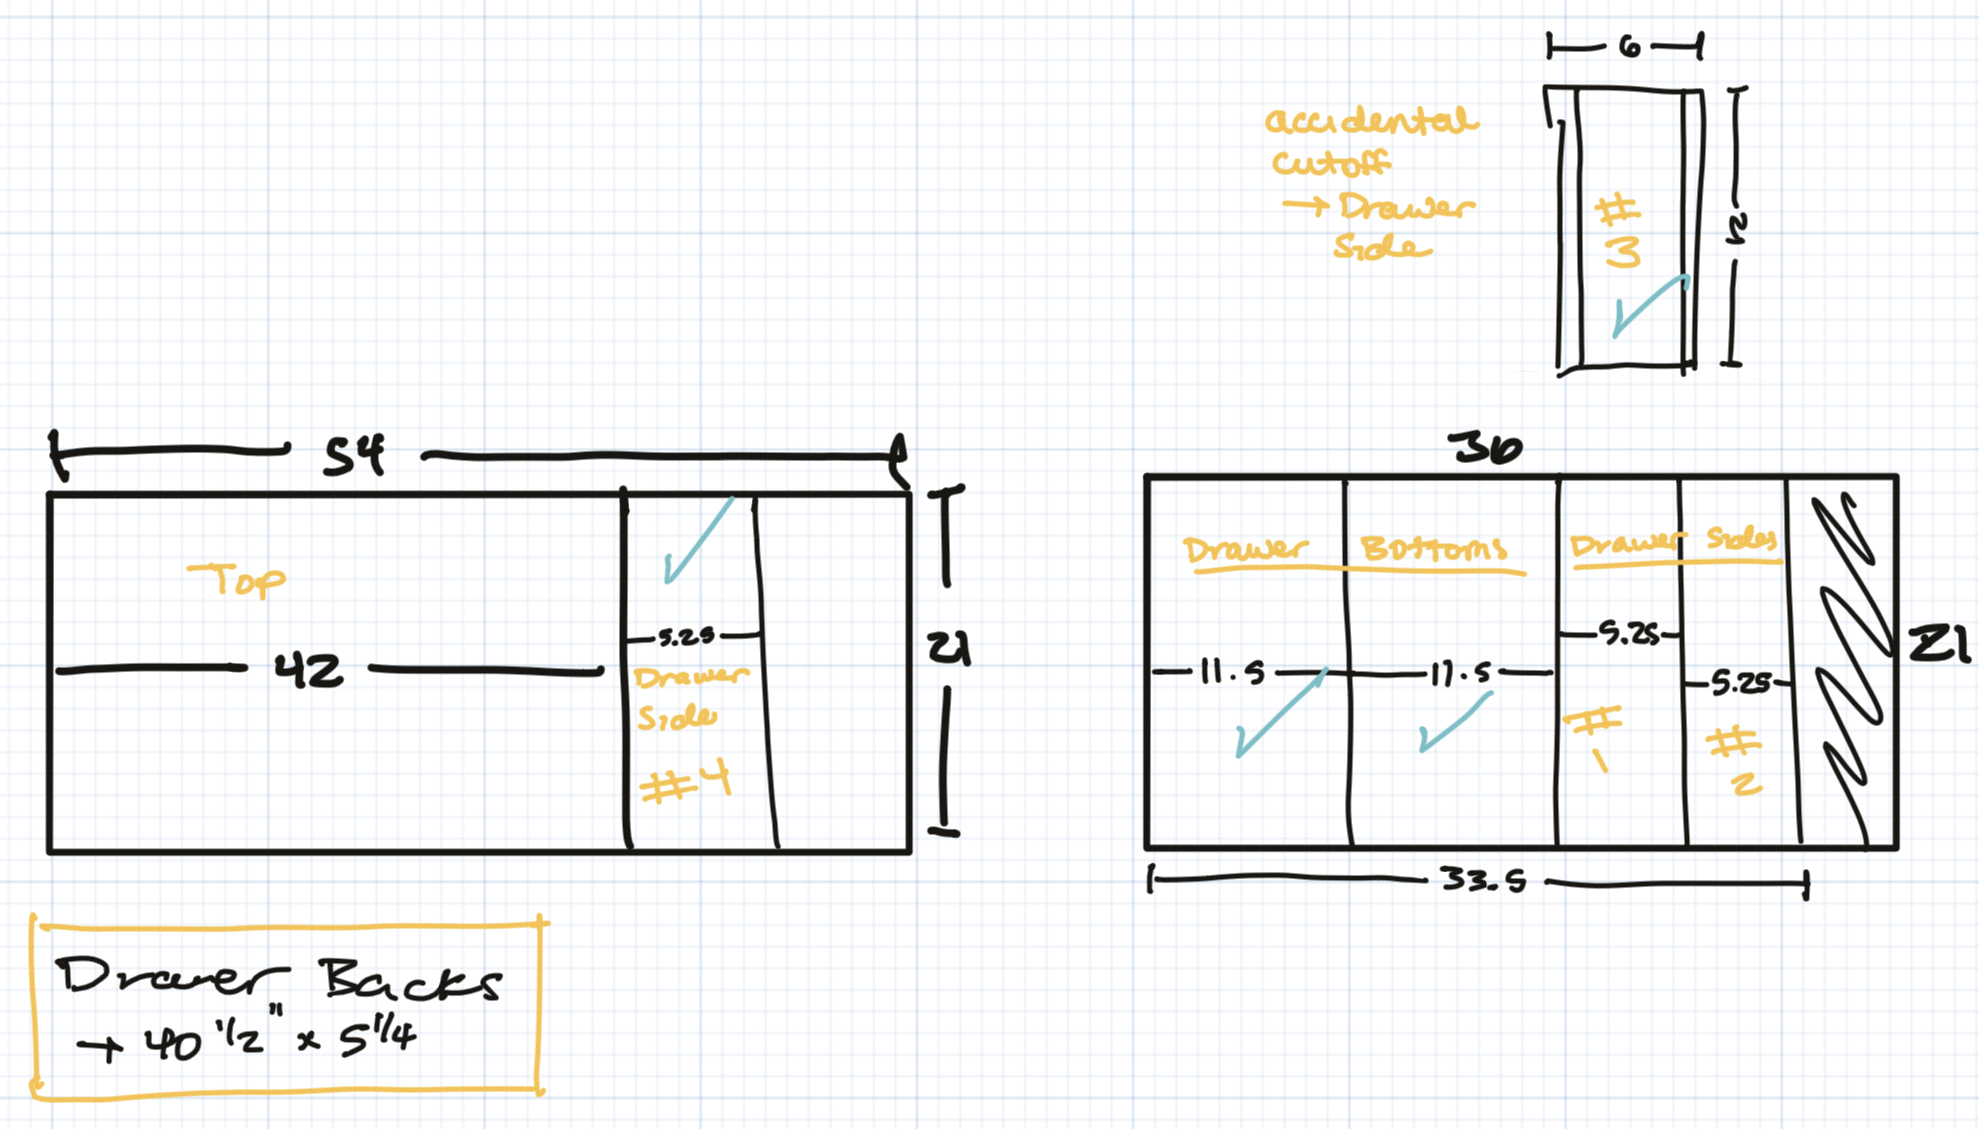 6
accidental
cutoff
→ Drawer
side
#
3
21
54
Top
42
5.25
Drawer
side
#4
21
36
Drawer Bottoms
Drawer sides
11.5
11.5
5.25
5.25
#
1
#
2
21
33.5
Drawer Backs
→ 40 1/2" x 5 1/4